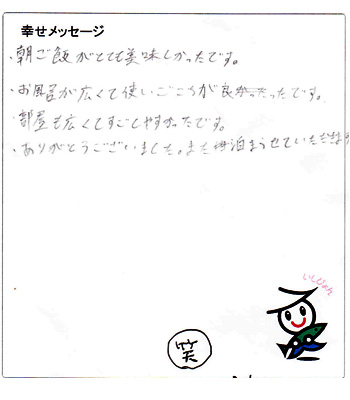 幸せメッセージ
・朝ご飯がとても美味しかったです。
・お風呂が広くて使いごこちが良かったです。
・部屋も広くてすごしやすかったです。
・ありがとうございました。また 泊まらせていただきます
いしじゃん
笑